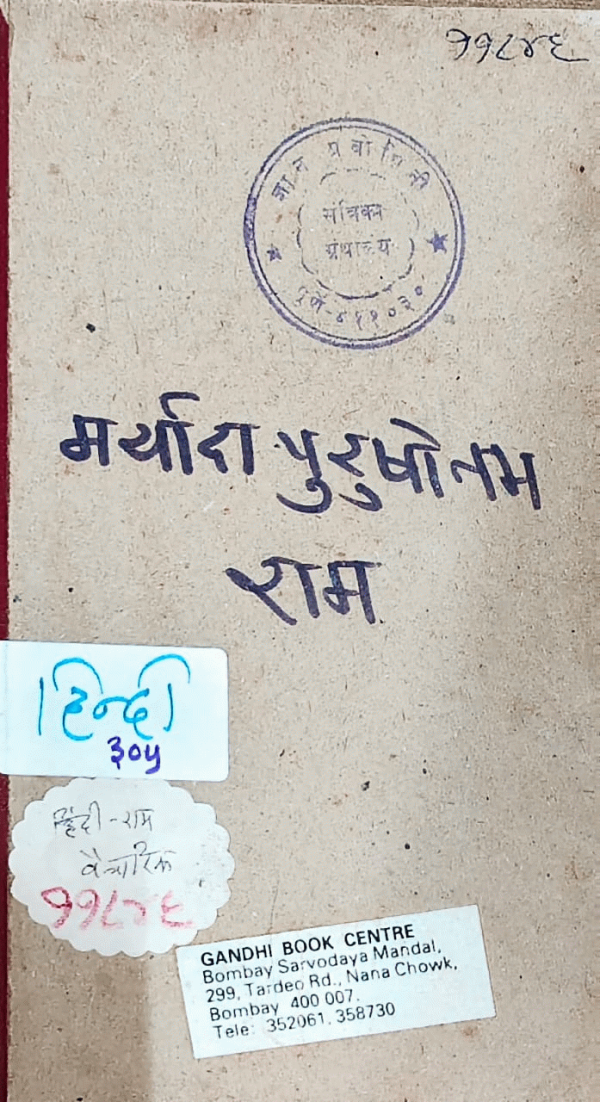 ११८४६
ज्ञान प्रबोधिनी
संत्रिका
ग्रंथालय
पुणे-४११०३०
मर्यादा पुरुषोतम
राम
हिन्दी
३०५
हिंदी-राम
वैचारिक
११८४६
GANDHI BOOK CENTRE
Bombay Sarvodaya Mandal,
299, Tardeo Rd., Nana Chowk,
Bombay 400 007.
Tele: 352061. 358730